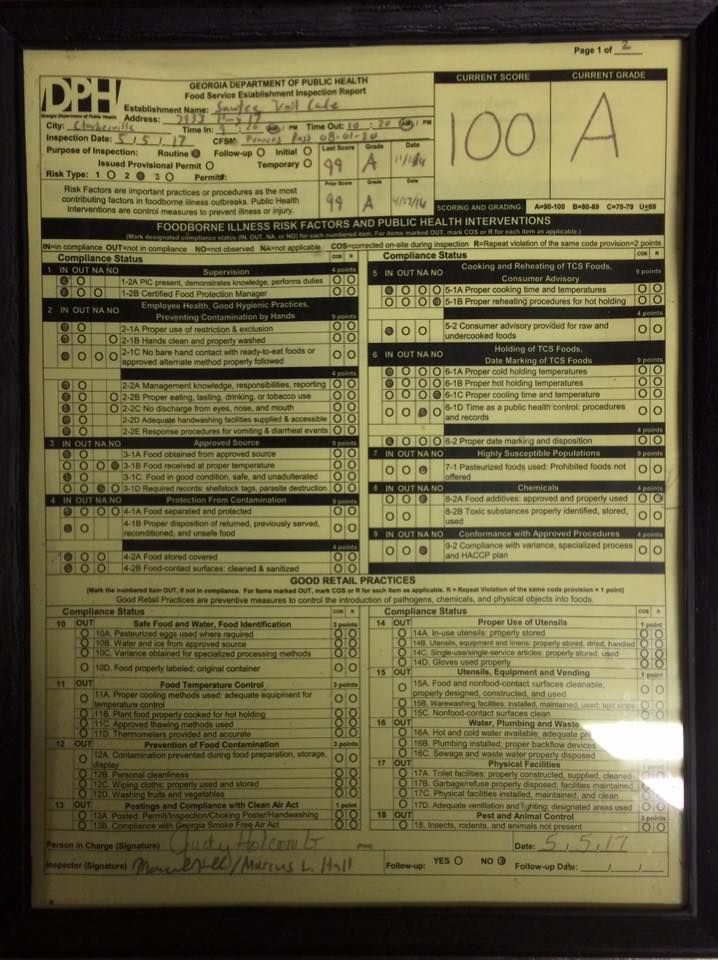 Page 1 of 2
DPH
Georgia Department of Public Health
GEORGIA DEPARTMENT OF PUBLIC HEALTH
Food Service Establishment Inspection Report
CURRENT SCORE
CURRENT GRADE
100
A
Establishment Name: Sautee Cafe
Address: 17
City: Clarkesville
Time In: AM / PM Time Out: AM / PM
Inspection Date: 5/5/17 CFSM:
Purpose of Inspection: Routine Follow-up Initial
Issued Provisional Permit Temporary
Risk Type: 1 2 3 Permit#:
Last Score Grade Date
99 A
Prior Score Grade Date
99 A
Risk Factors are important practices or procedures as the most
contributing factors in foodborne illness outbreaks. Public Health
Interventions are control measures to prevent illness or injury.
SCORING AND GRADING: A=90-100 B=80-89 C=70-79 U≤69
FOODBORNE ILLNESS RISK FACTORS AND PUBLIC HEALTH INTERVENTIONS
(Mark designated compliance status (IN, OUT, NA, or NO) for each numbered item. For items marked OUT, mark COS or R for each item as applicable.)
IN=in compliance OUT=not in compliance NO=not observed NA=not applicable COS=corrected on-site during inspection R=Repeat violation of the same code provision=2 points
Compliance Status COS R
1 IN OUT NA NO Supervision 4 points
1-2A PIC present, demonstrates knowledge, performs duties
1-2B Certified Food Protection Manager
2 IN OUT NA NO Employee Health, Good Hygienic Practices,
Preventing Contamination by Hands 9 points
2-1A Proper use of restriction & exclusion
2-1B Hands clean and properly washed
2-1C No bare hand contact with ready-to-eat foods or
approved alternate method properly followed
4 points
2-2A Management knowledge, responsibilities, reporting
2-2B Proper eating, tasting, drinking, or tobacco use
2-2C No discharge from eyes, nose, and mouth
2-2D Adequate handwashing facilities supplied & accessible
2-2E Response procedures for vomiting & diarrheal events
3 IN OUT NA NO Approved Source 9 points
3-1A Food obtained from approved source
3-1B Food received at proper temperature
3-1C. Food in good condition, safe, and unadulterated
3-1D Required records: shellstock tags, parasite destruction
4 IN OUT NA NO Protection From Contamination 9 points
4-1A Food separated and protected
4-1B Proper disposition of returned, previously served,
reconditioned, and unsafe food
4 points
4-2A Food stored covered
4-2B Food-contact surfaces: cleaned & sanitized
Compliance Status COS R
5 IN OUT NA NO Cooking and Reheating of TCS Foods,
Consumer Advisory 9 points
5-1A Proper cooking time and temperatures
5-1B Proper reheating procedures for hot holding
4 points
5-2 Consumer advisory provided for raw and
undercooked foods
6 IN OUT NA NO Holding of TCS Foods,
Date Marking of TCS Foods 9 points
6-1A Proper cold holding temperatures
6-1B Proper hot holding temperatures
6-1C Proper cooling time and temperature
6-1D Time as a public health control: procedures
and records
4 points
6-2 Proper date marking and disposition
7 IN OUT NA NO Highly Susceptible Populations 9 points
7-1 Pasteurized foods used: Prohibited foods not
offered
8 IN OUT NA NO Chemicals 4 points
8-2A Food additives: approved and properly used
8-2B Toxic substances properly identified, stored,
used
9 IN OUT NA NO Conformance with Approved Procedures 4 points
9-2 Compliance with variance, specialized process
and HACCP plan
GOOD RETAIL PRACTICES
(Mark the numbered item OUT, if not in compliance. For items marked OUT, mark COS or R for each item as applicable. R = Repeat Violation of the same code provision = 1 point)
Good Retail Practices are preventive measures to control the introduction of pathogens, chemicals, and physical objects into foods.
Compliance Status COS R
10 OUT Safe Food and Water, Food Identification 3 points
10A. Pasteurized eggs used where required
10B. Water and ice from approved source
10C. Variance obtained for specialized processing methods
10D. Food properly labeled; original container
11 OUT Food Temperature Control 3 points
11A. Proper cooling methods used: adequate equipment for
temperature control
11B. Plant food properly cooked for hot holding
11C. Approved thawing methods used
11D. Thermometers provided and accurate
12 OUT Prevention of Food Contamination 3 points
12A. Contamination prevented during food preparation, storage,
display
12B. Personal cleanliness
12C. Wiping cloths: properly used and stored
12D. Washing fruits and vegetables
13 OUT Postings and Compliance with Clean Air Act 1 point
13A. Posted: Permit/Inspection/Choking Poster/Handwashing
13B. Compliance with Georgia Smoke Free Air Act
Compliance Status COS R
14 OUT Proper Use of Utensils 1 point
14A. In-use utensils: properly stored
14B. Utensils, equipment and linens: properly stored, dried, handled
14C. Single-use/single-service articles: properly stored, used
14D. Gloves used properly
15 OUT Utensils, Equipment and Vending 1 point
15A. Food and nonfood-contact surfaces cleanable,
properly designed, constructed, and used
15B. Warewashing facilities: installed, maintained, used; test strips
15C. Nonfood-contact surfaces clean
16 OUT Water, Plumbing and Waste
16A. Hot and cold water available; adequate
16B. Plumbing installed; proper backflow devices
16C. Sewage and waste water properly disposed
17 OUT Physical Facilities
17A. Toilet facilities: properly constructed, supplied, cleaned
17B. Garbage/refuse properly disposed; facilities maintained
17C. Physical facilities installed, maintained, and clean
17D. Adequate ventilation and lighting; designated areas used
18 OUT Pest and Animal Control 3 points
18. Insects, rodents, and animals not present
Person in Charge (Signature) Judy Holcomb (Print) Date: 5/5/17
Inspector (Signature) Marcus Hall / Marcus L. Hall Follow-up: YES NO Follow-up Date: / /